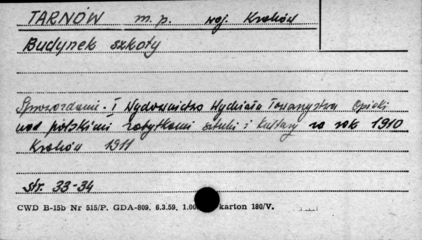 TARNÓW m.p. woj. Kraków
Budynek szkoły
Sprawozdanie i Wydawnictwo Wydziału Towarzystwa Opieki
nad polskimi zabytkami sztuki i kultury za rok 1910
Kraków 1911
str. 33-34
CWD B-15b Nr 515/P. GDA-809. 6.3.59. 1.00 karton 180/V.